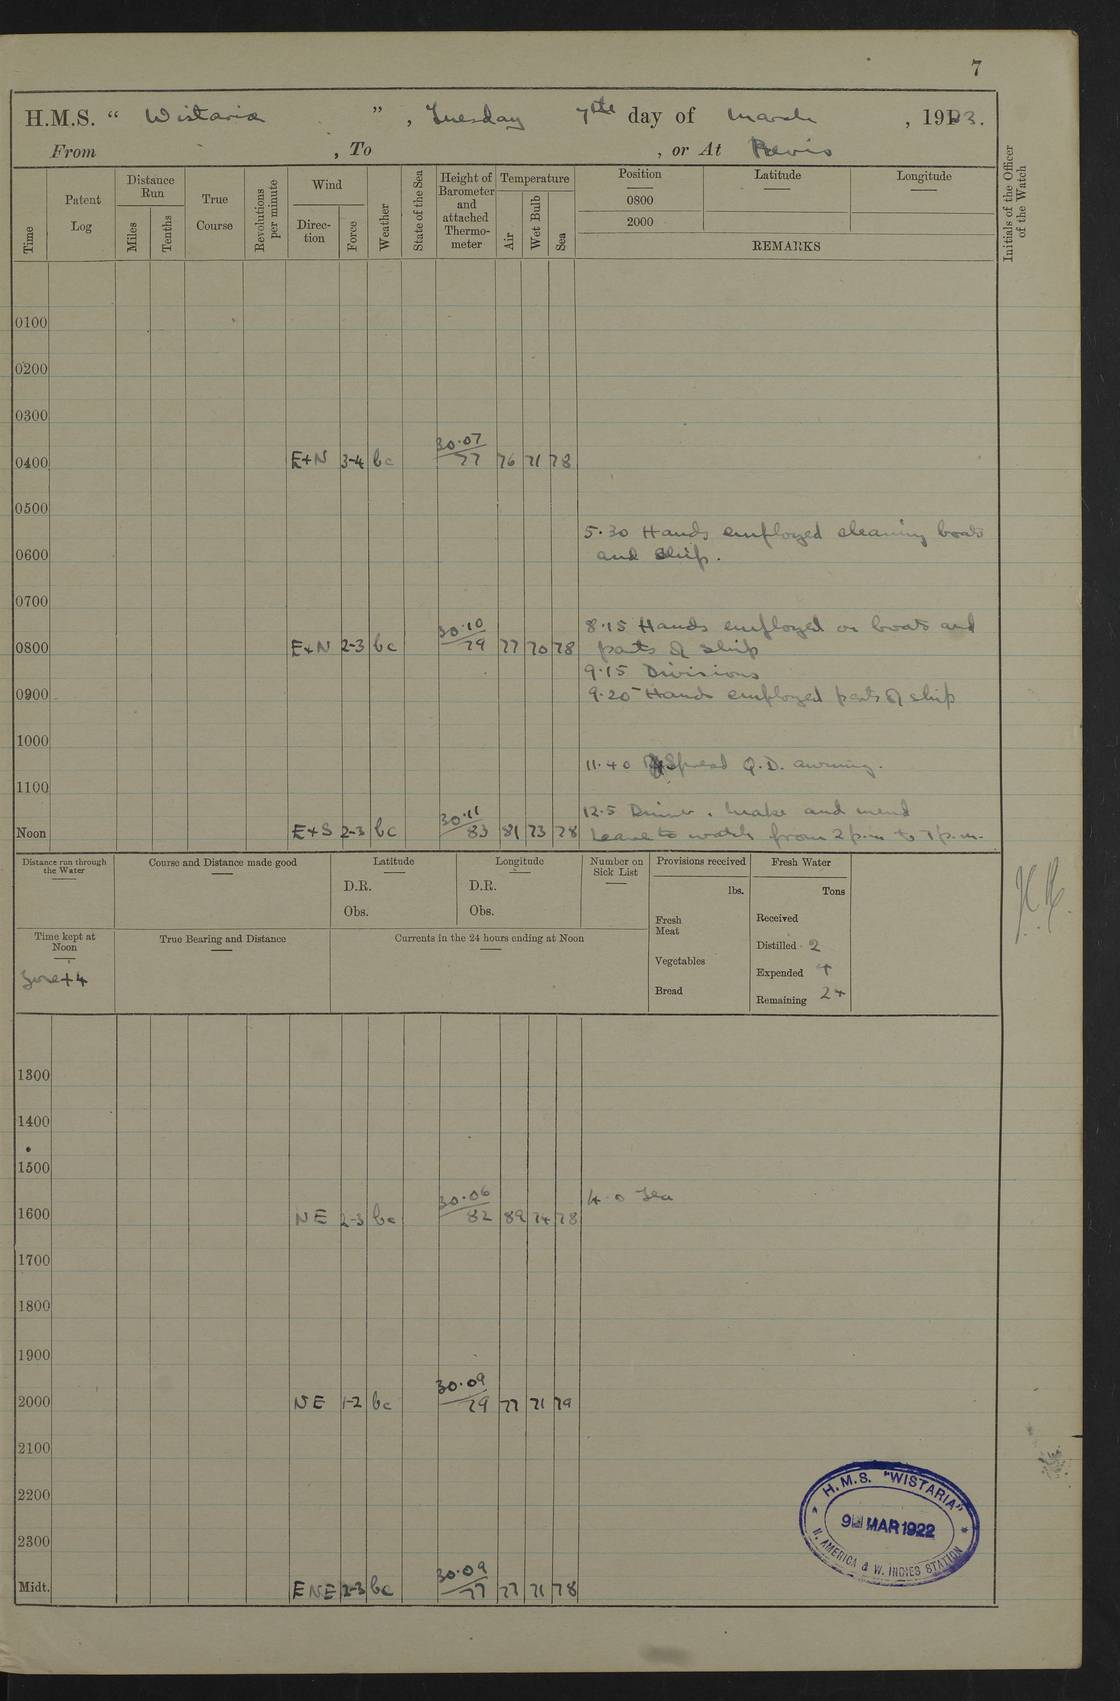 7
H.M.S. “ Wistaria ” , Tuesday 7th day of March , 19 3.
From , To , or At
Time
Patent Log
Distance Run
Miles
Tenths
True Course
Revolutions per minute
Wind
Direc-tion
Force
Weather
State of the Sea
Height of Barometer and attached Thermo-meter
Temperature
Air
Wet Bulb
Sea
Position
0800
2000
Latitude
Longitude
REMARKS
Initials of the Officer of the Watch
0100
0200
0300
30.07
0400 E+N 3-4 bc 77 76 71 78
0500
5.30 Hands employed cleaning boats
0600 and ship.
0700
8.15 Hands employed on boats and
30.10
0800 E+N 2-3 bc 79 77 70 78 parts of ship
9.15 Divisions
0900 9.20 Hands employed parts of ship
1000
11.40 Spread Q.D. awning.
1100
30.11 12.5 Dinner. Make and mend
Noon E+S 2-3 bc 83 81 73 78 Leave to watch from 2 p.m to 7 p.m.
Distance run through the Water
Course and Distance made good
Latitude
D.R.
Obs.
Longitude
D.R.
Obs.
Number on Sick List
Provisions received
lbs.
Fresh Meat
Vegetables
Bread
Fresh Water
Tons
Received
Distilled 2
Expended 4
Remaining 24
Time kept at Noon
Zone+4
True Bearing and Distance
Currents in the 24 hours ending at Noon
1300
1400
1500
30.06 4.0 Tea
1600 NE 2-3 bc 82 82 74 78
1700
1800
1900
30.09
2000 NE 1-2 bc 79 77 71 79
2100
2200
2300
30.09
Midt. ENE 2-3 bc 77 77 71 78
H.M.S. "WISTARIA"
9 MAR 1922
N. AMERICA & W. INDIES STATION